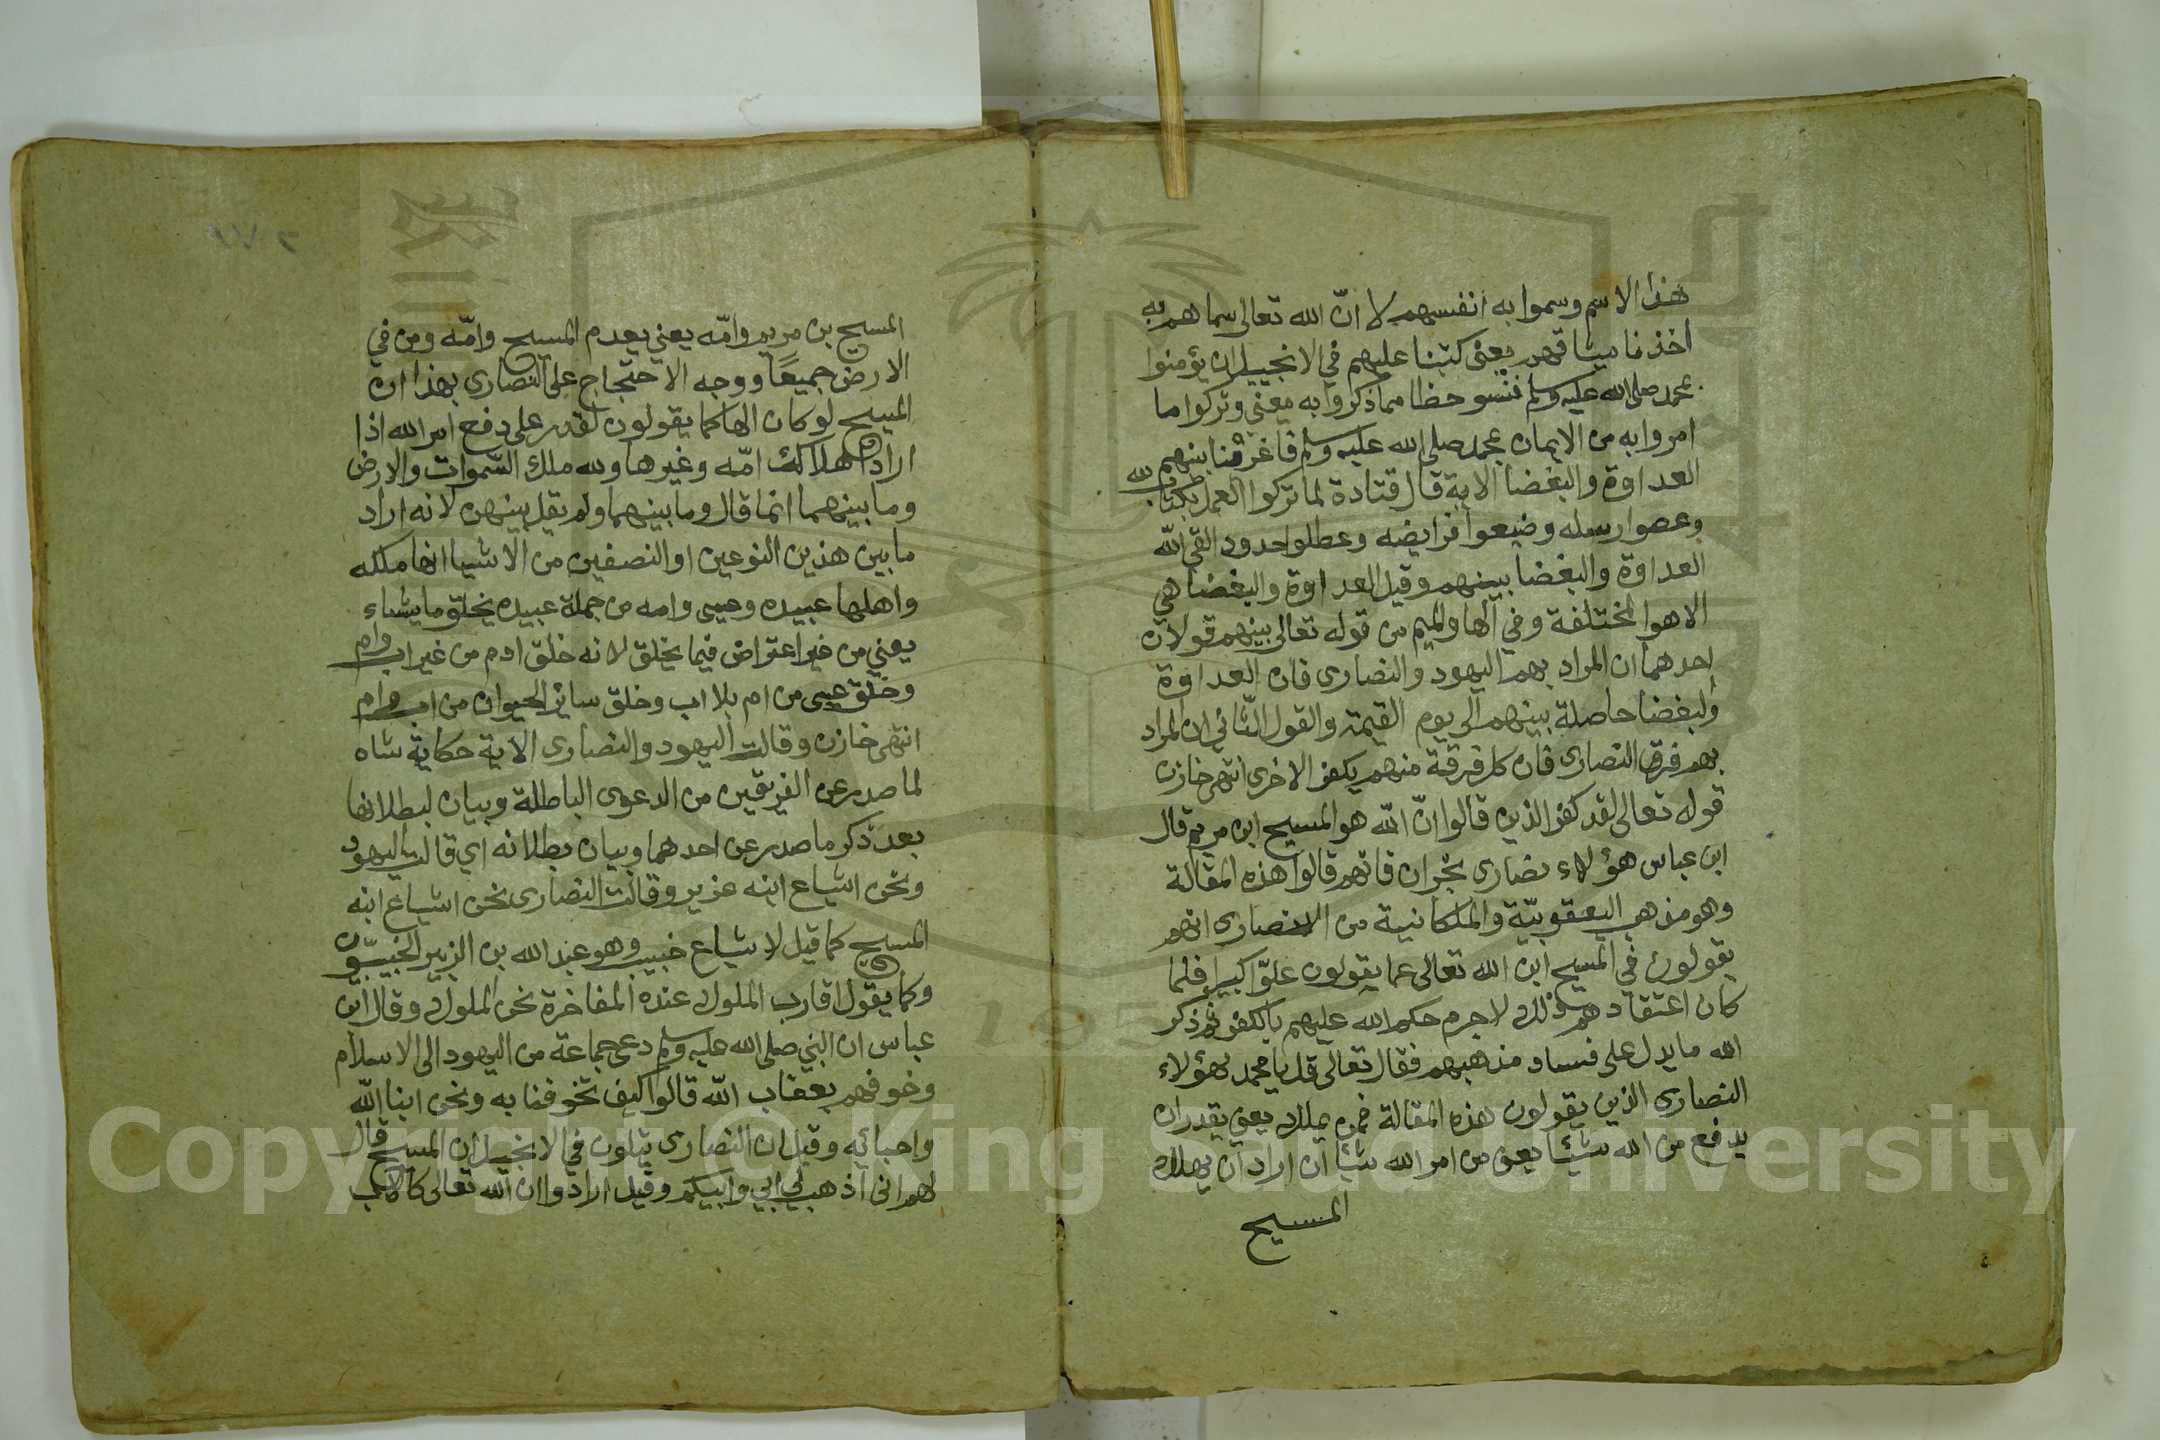 هذا الاسم وسموا به انفسهم لا انّ الله تعالى سماهم به
اخذنا ميثاقهم يعنى كتبنا عليهم في الانجيل ان يؤمنوا
بمحمد صلى الله عليه وسلم فنسو حظا مما ذكروا به يعني وتركوا ما
امروا به من الايمان بمحمد صلى الله عليه وسلم فاغرينا بينهم
العداوة والبغضا الاية قال قتادة لما تركوا العمل بكتاب الله
وعصوا رسله وضيعوا فرايضه وعطلوا حدود القى الله
العداوة والبغضا بينهم وقيل العداوة والبغضا هي
الاهوا المختلفة وفي الها والميم من قوله تعالى بينهم قولان
احدهما ان المراد بهم اليهود والنصارى فان العداوة
والبغضا حاصلة بينهم الى يوم القيمة والقول الثاني ان المراد
بهم فرق النصارى فان كل فرقة منهم يكفر الاخرى انتهى خازن
قوله تعالى لقد كفر الذين قالوا انّ الله هو المسيح ابن مريم قال
ابن عباس هؤلاء نصارى نجران فانهم قالوا هذه المقالة
وهو مذهب اليعقوبيّة والملكانية من النصارى انهم
يقولون في المسيح ابن الله تعالى عما يقولون علوّا كبيرا فلما
كان اعتقادهم ذلك لا جرم حكم الله عليهم بالكفر ثم ذكر
الله ما يدل على فساد مذهبهم فقال تعالى قل يا محمد لهؤلاء
النصارى الذين يقولون هذه المقالة فمن يملك يعني يقدر ان
يدفع من الله شيئا يعني من امر الله شيئا ان اراد ان يهلك
المسيح
المسيح بن مريم وامّه يعني يعدم المسيح وامّه ومن في
الارض جميعًا ووجه الاحتجاج على النصارى بهذا ان
المسيح لو كان الها كما يقولون لقدر على دفع امر الله اذا
اراد اهلاكه امّه وغيرها ولله ملك السّموات والارض
وما بينهما انما قال وما بينهما ولم يقل بينهن لانه اراد
ما بين هذين النوعين او النصفين من الاشيا انها ملكه
واهلها عبيده وعيسى وامه من جملة عبيده يخلق ما يشاء
يعني من غير اعتراض فيما يخلق لانه خلق ادم من غير اب وام
وخلق عيسى من ام بلا اب وخلق سائر الحيوان من اب وام
انتهى خازن وقالت اليهود والنصارى الاية حكاية شاه
لما صدر عن الفريقين من الدعوى الباطلة وبيان لبطلانها
بعد ذكر ما صدر عن احدهما وبيان بطلانه اي قالت اليهود
ونحن اشياع ابنه عزير وقالت النصارى نحن اشياع ابنه
المسيح كما قيل لاشياع خبيب وهو عبد الله بن الزبير الخبيبّون
وكما يقول اقارب الملوك عنده المفاخرة نحن الملوك وقال ابن
عباس ان النبي صلى الله عليه وسلم دعى جماعة من اليهود الى الاسلام
وخوفهم بعقاب الله قالوا كيف تخوفنا به ونحن ابنا الله
واحبائه وقيل ان النصارى يتلون في الانجيل ان المسيح قال
لهم انى اذهب الى ابي وابيكم وقيل ارادوا ان الله تعالى كالاب
Copyright © King Saud University